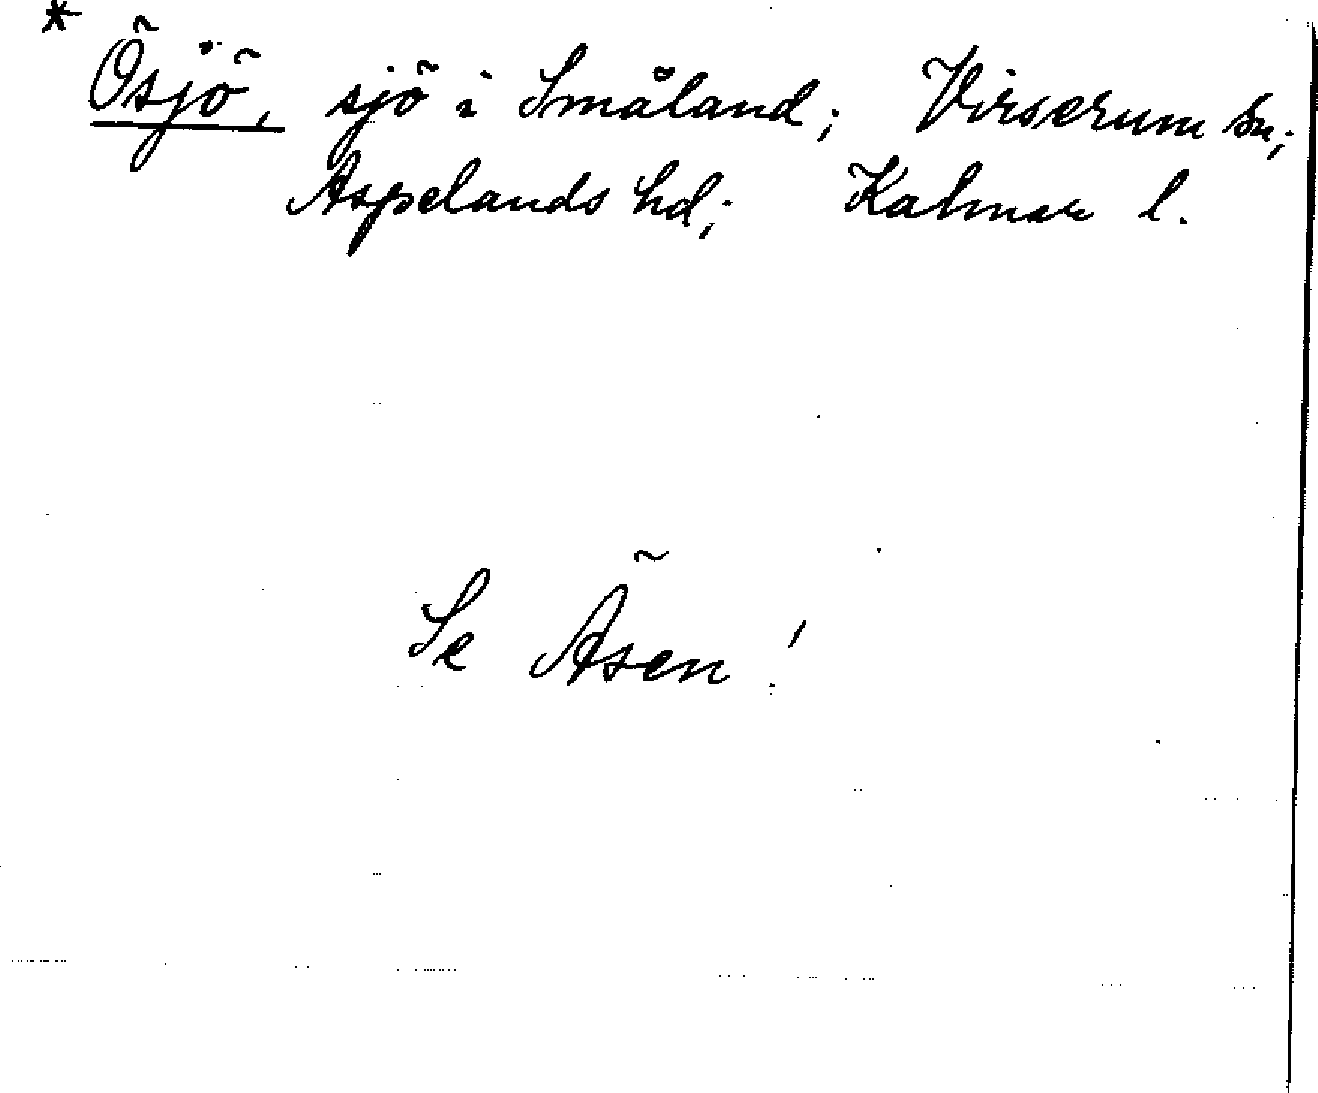 * Ösjö, sjö i Småland; Virserum sn;
Aspelands hd; Kalmar l.
Se Äsen!